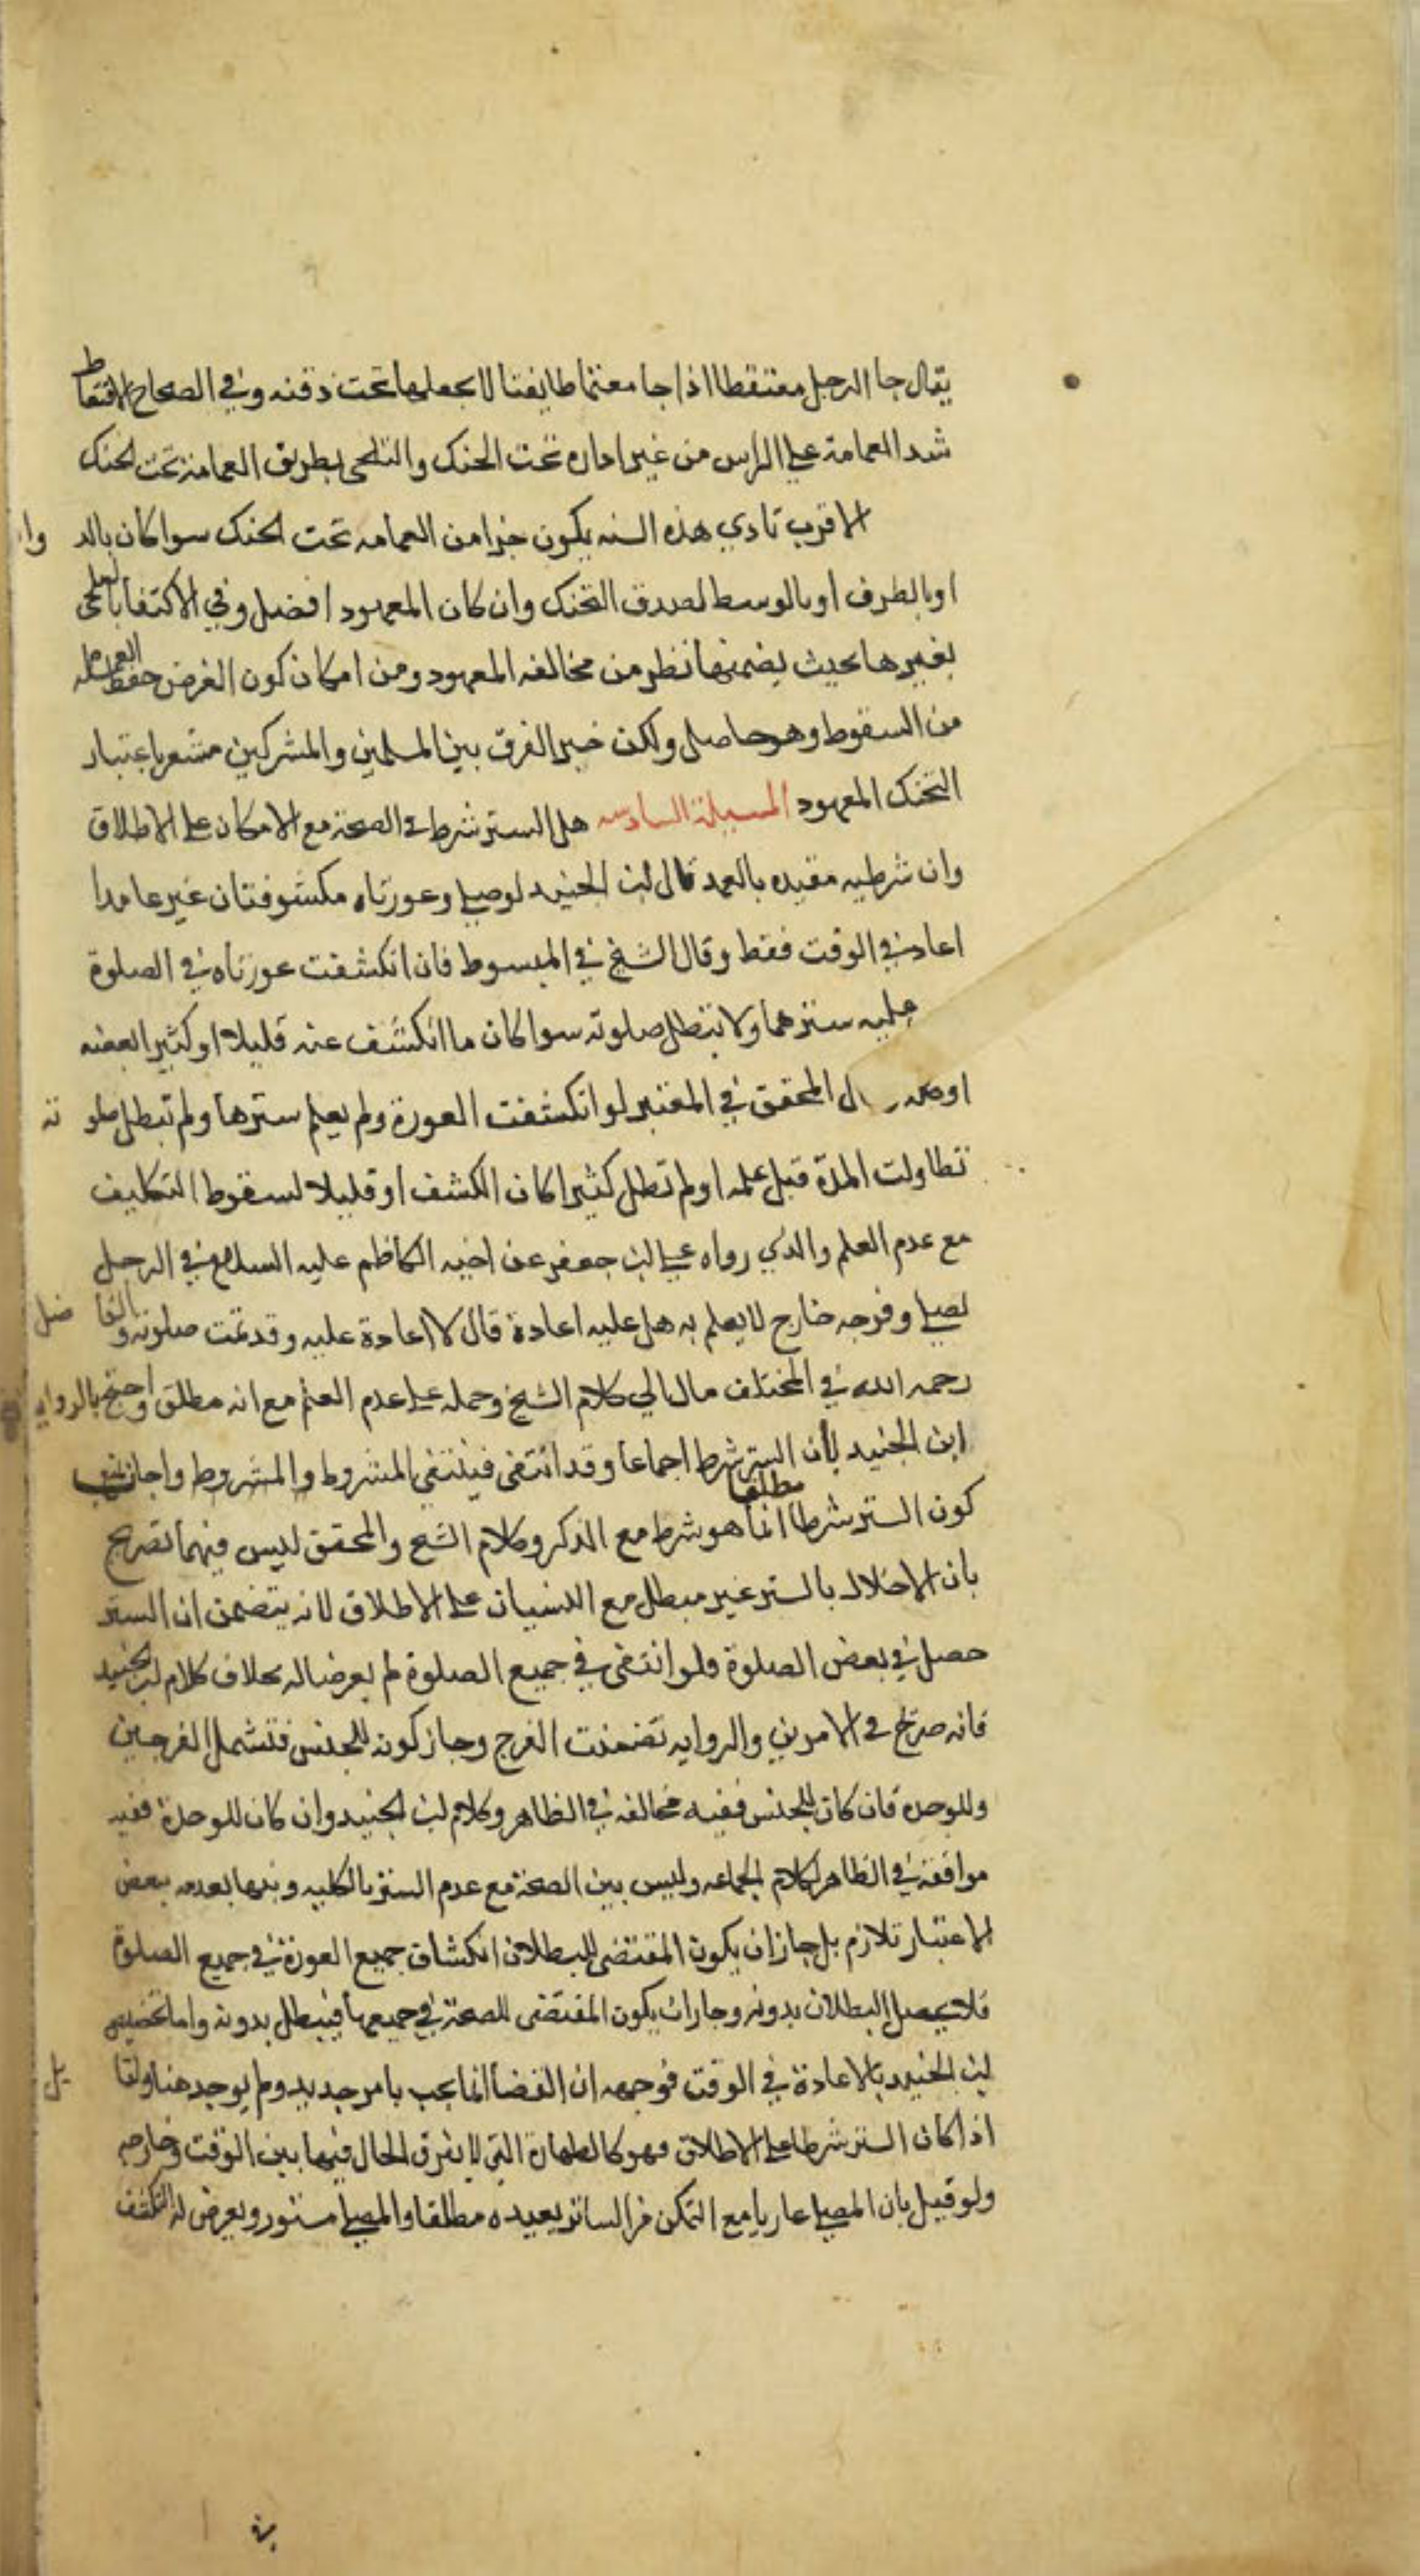 يقال جا الرجل مقتعطا اذا جا معتما طابقيا لا يجعلها تحت ذقنه وفي الصحاح الاقتعاط
شد العمامة على الراس من غير اداره تحت الحنك والتلحي بطريق العمامة تحت لحنك
الاقرب تادي هذه السنه بكون جزا من العمامه تحت لحنك سوا كان بالد وا
او بالطرف او بالوسط لصدق التحنك وان كان المعهود افضل وفي الاكتفا بالتلحي
بغيرها بحيث يضمنها نظر من مخالفه المعهود ومن امكان كون الغرض حفظ العمامه
من السقوط وهو حاصل ولكن خبر الفرق بين المسلمين والمشركين مشعر باعتبار
التحنك المعهود المسيلة السادسه هل الستر شرط في الصحة مع الامكان على الاطلاق
وان شرطيه مقيده بالعمد قال ابن الجنيد لو صلى وعورتاه مكشوفتان غير عامدا
اعاد في الوقت فقط وقال الشيخ في المبسوط فان انكشفت عورتاه في الصلوة
عليه سترهما ولا تبطل صلوته سوا كان ما انكشف عنه قليلا او كثيرا بعضه
او كله ال المحقق في المعتبر لو انكشفت العورة ولم يعلم سترها ولم تبطل صلو ته
تطاولت المدة قبل علمه او لم تطل كثيرا كان الكشف او قليلا لسقوط التكليف
مع عدم العلم والذي رواه علي ابن جعفر عن اخيه الكاظم عليه السلام في الرجل
يصلي وفرجه خارج لا يعلم به هل عليه اعادة قال لا اعادة عليه وقد تمت صلوته والفا ضل
رحمه الله في المختلف مال الي كلام الشيخ وحمله على عدم العلم مع انه مطلق واحتج بالروايه
ابن الجنيد بان الستر شرط اجماعا وقد انتفى فينتفي المشروط والمشروط واجاب
كون الستر شرطا مطلقا انما هو شرط مع الذكر وكلام الشيخ والمحقق ليس فيهما تصريح
بان الاخلال بالستر غير مبطل مع النسيان على الاطلاق لانه يتضمن ان الستر
حصل في بعض الصلوة فلو انتفى في جميع الصلوة لم يعرضا له بخلاف كلام ابن الجنيد
فانه صريح في الامرين والروايه تضمنت الفرج وجاز كونه للجنس فتشمل الفرجين
وللوحده فان كان للجنس ففيه مخالفه في الظاهر وكلام ابن الجنيد وان كان للوحدة ففيه
موافقه في الظاهر لكلام الجماعه وليس بين الصحة مع عدم الستر بالكليه وبينها بعدمه ببعض
الاعتبار تلازم بل جاز ان يكون المقتضي للبطلان انكشاف جميع العورة في جميع الصلوة
فلا يحصل البطلان بدونه وجاز ان يكون المقتضى للصحة في جميعها فيبطل بدونه واما تخصيص
ابن الجنيد بالاعادة في الوقت فوجهه ان القضا انما يجب بامر جديد ولم يوجد هنا ولقا يل
اذا كان الستر شرطا على الاطلاق فهو كالطهارة التي لا يفرق الحال فيها بين الوقت وخارجه
ولو قيل بان المصلي عاريا مع التمكن من الساتر يعيده مطلقا والمصلي مستور ويعرض له التكشف
في